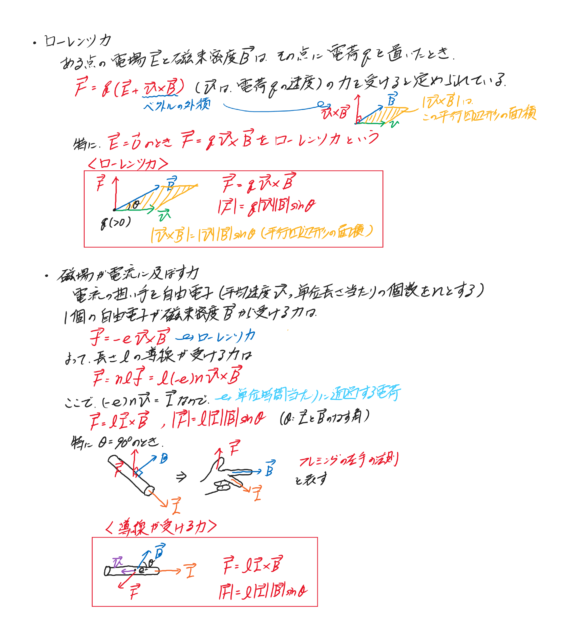 ・ローレンツ力
ある点の電場E⃗と磁束密度B⃗は、その点に電荷qを置いたとき、
F⃗ = q(E⃗ + v⃗×B⃗) (v⃗は、電荷qの速度)の力を受けると定められている。
ベクトルの外積
v⃗×B⃗ B⃗ v⃗
|v⃗×B⃗|は
この平行四辺形の面積
特に、E⃗=0⃗のとき F⃗ = q v⃗×B⃗をローレンツ力という
<ローレンツ力>
F⃗ B⃗ θ v⃗ q(>0)
F⃗ = q v⃗×B⃗
|F⃗| = q|v⃗||B⃗|sinθ
|v⃗×B⃗| = |v⃗||B⃗|sinθ (平行四辺形の面積)
・磁場が電流に及ぼす力
電流の担い手を自由電子(平均速度v⃗, 単位長さ当たりの個数をnとする)
1個の自由電子が磁束密度B⃗から受ける力は、
f⃗ = -e v⃗×B⃗ ローレンツ力
よって、長さlの導線が受ける力は
F⃗ = nlf⃗ = l(-e)n v⃗×B⃗
ここで、(-e)n v⃗ = I⃗なので、 単位時間当たりに通過する電荷
F⃗ = l I⃗×B⃗ , |F⃗| = l|I⃗||B⃗|sinθ (θ: I⃗とB⃗のなす角)
特にθ=90°のとき、
F⃗ B⃗ I⃗ ⇒ F⃗ B⃗ I⃗
フレミングの左手の法則
と表す
<導線が受ける力>
v⃗ B⃗ θ I⃗ F⃗
F⃗ = l I⃗×B⃗
|F⃗| = l|I⃗||B⃗|sinθ